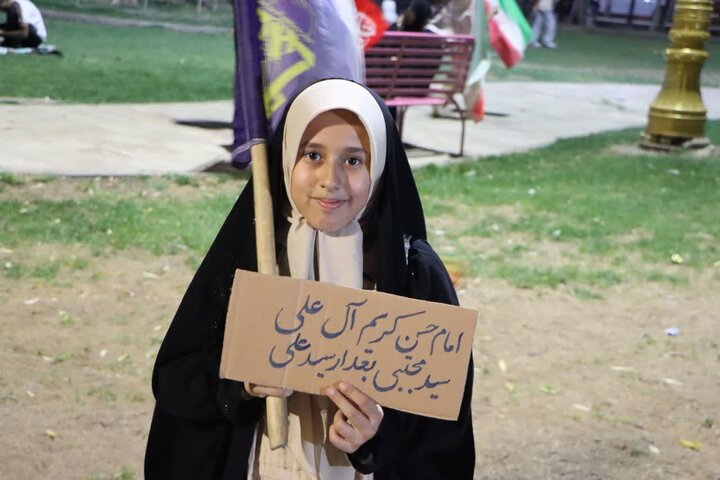 امام حسن کریم آل علی
سید مجتبی بعداز سید علی